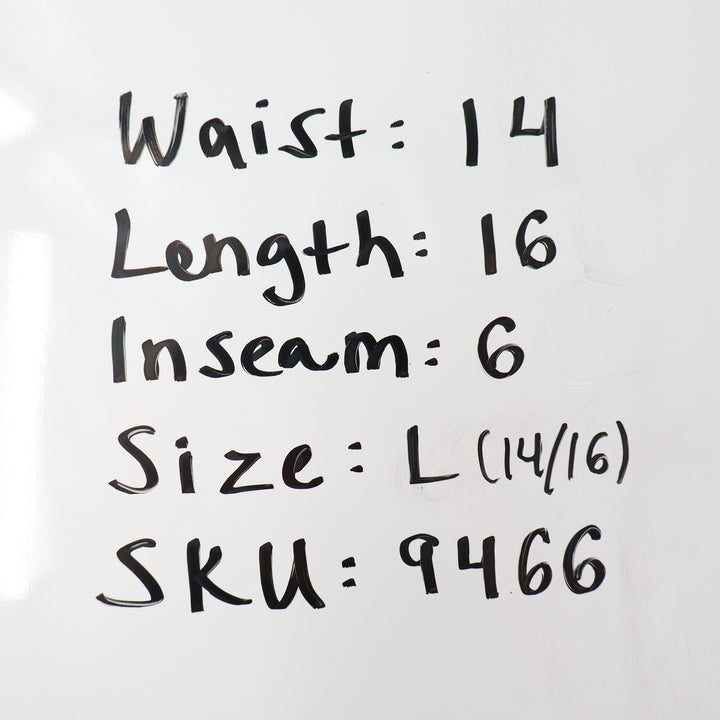 Waist: 14
Length: 16
Inseam: 6
Size: L (14/16)
SKU: 9466